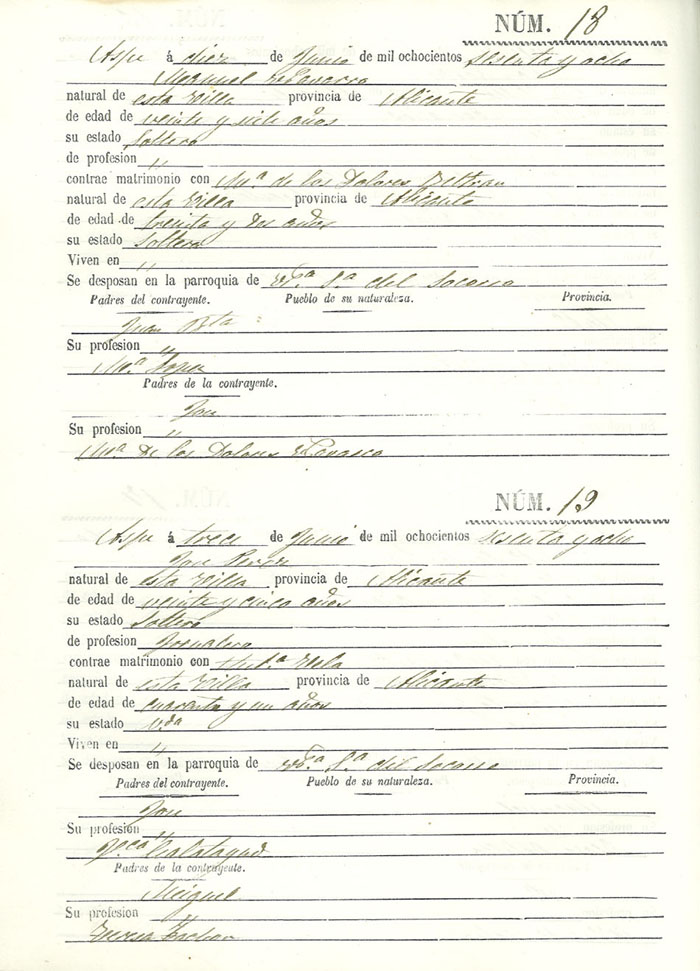 NÚM. 18
Aspe á diez de Junio de mil ochocientos sesenta y ocho
Manuel
natural de esta Villa provincia de Alicante
de edad de veinte y siete años
su estado Soltero
de profesion "
contrae matrimonio con Mª de los Dolores Beltran
natural de esta Villa provincia de Alicante
de edad de treinta y dos años
su estado Soltera
Viven en "
Se desposan en la parroquia de Sª del Socorro
Padres del contrayente. Pueblo de su naturaleza. Provincia.
Juan Bta
Su profesion "
Mª Lopez
Padres de la contrayente.
Jose
Su profesion "
Mª de los Dolores
NÚM. 19
Aspe á trece de Junio de mil ochocientos sesenta y ocho
Jose
natural de esta Villa provincia de Alicante
de edad de veinte y cinco años
su estado Soltero
de profesion Jornalero
contrae matrimonio con
natural de esta Villa provincia de Alicante
de edad de cuarenta y un años
su estado Vda
Viven en "
Se desposan en la parroquia de Sª del Socorro
Padres del contrayente. Pueblo de su naturaleza. Provincia.
Jose
Su profesion "
Calatayud
Padres de la contrayente.
Miguel
Su profesion "
Teresa